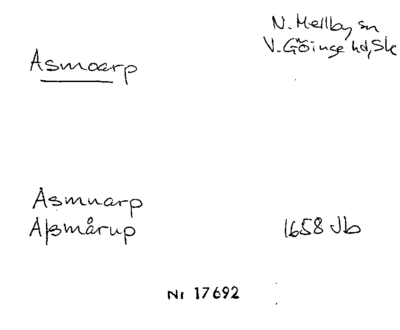 N. Mellby sn
V. Göinge hd, Sk
Asmoarp
Asmuarp
Aßmårup 1658 Jb
Nr 17692